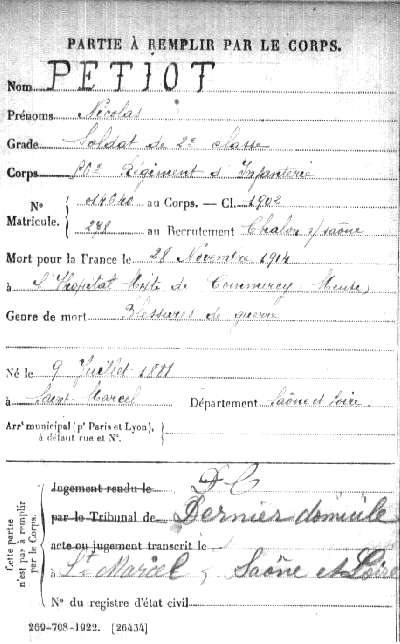 PARTIE À REMPLIR PAR LE CORPS.
Nom PETIOT
Prénoms Nicolas
Grade Soldat de 2e classe
Corps Régiment d'Infanterie
N° 014640 au Corps. — Cl. 1902
Matricule. au Recrutement Chalon s/ saône
Mort pour la France le 28 Novembre 1914
à l'Hôpital Mixte de Commercy Meuse
Genre de mort Blessures de guerre
Né le 9 Juillet 1881
à Saint Marcel Département Saône et Loire
Arrt municipal (pr Paris et Lyon),
à défaut rue et N°.
Cette partie n'est pas à remplir par le Corps.
Jugement rendu le D C
par le Tribunal de Dernier domicile
acte ou jugement transcrit le
à St Marcel, Saône et Loire
N° du registre d'état civil
269-708-1922. [26434]